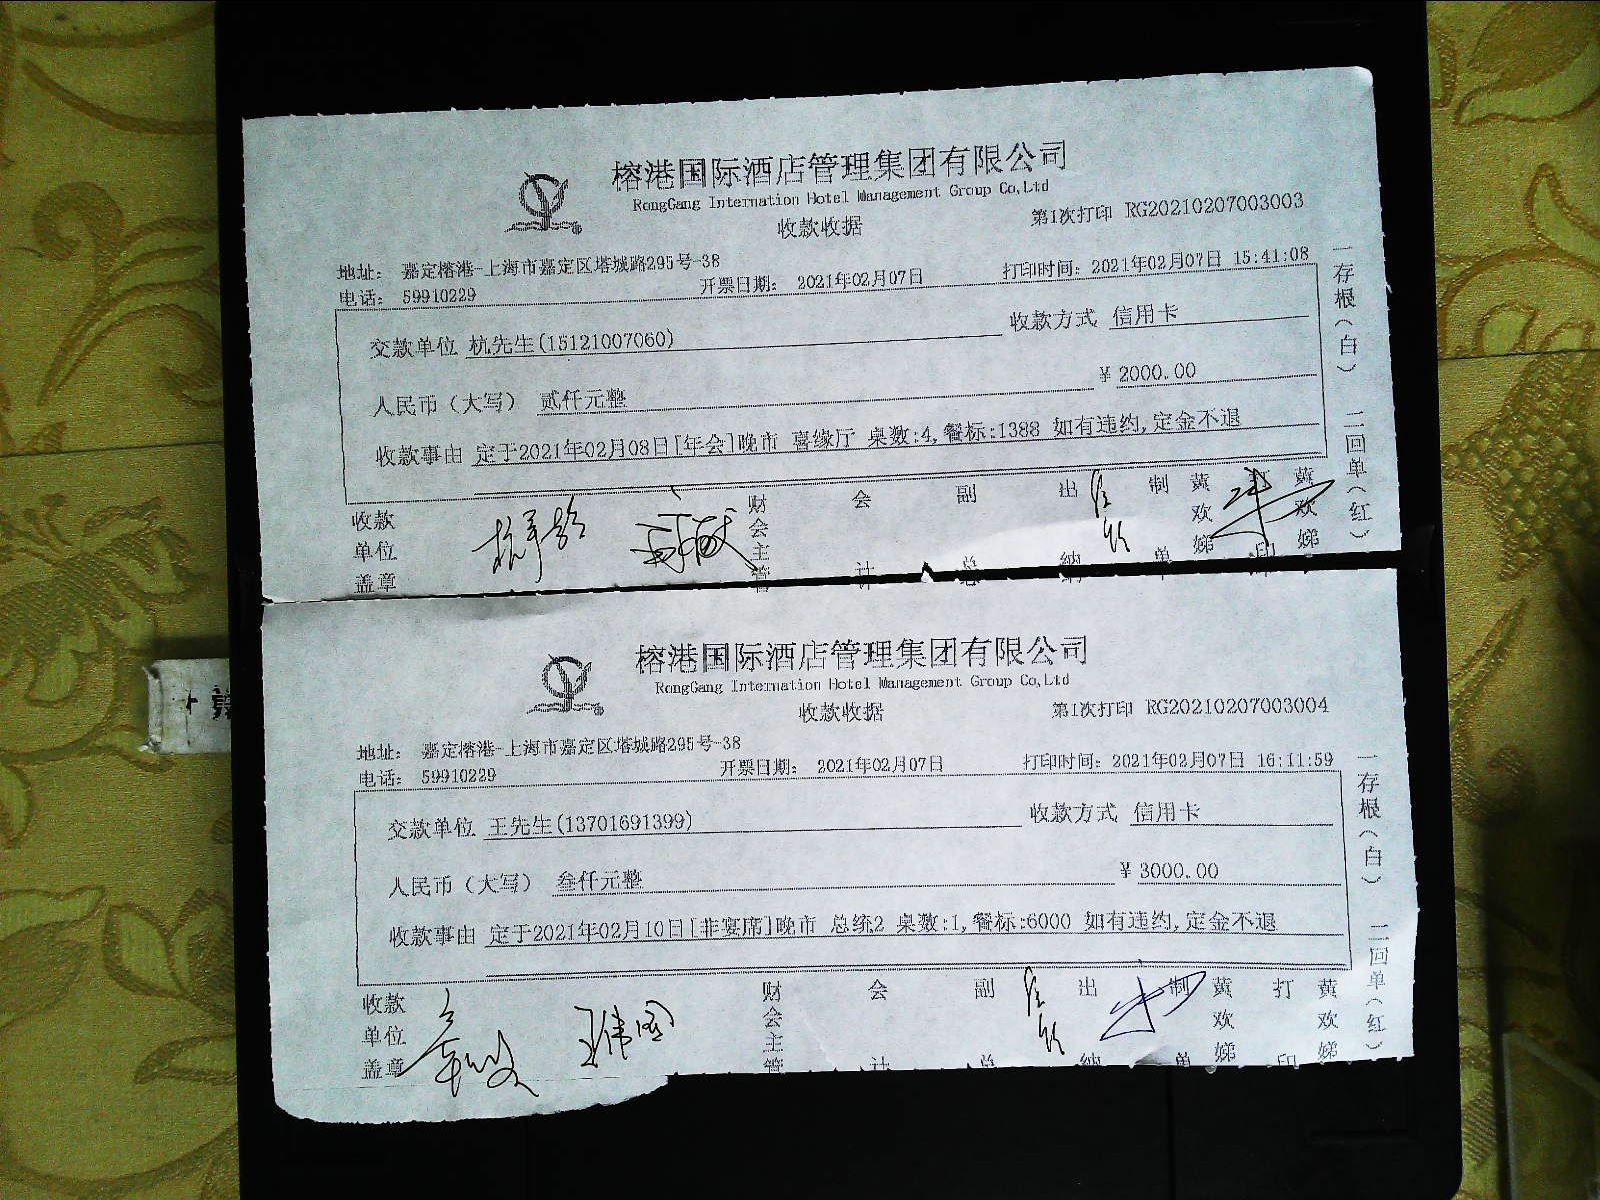 榕港国际酒店管理集团有限公司
RongGang Internation Hotel Management Group Co,Ltd
收款收据
第1次打印 RG20210207003003
地址： 嘉定榕港-上海市嘉定区塔城路295号-38
电话： 59910229
开票日期： 2021年02月07日
打印时间：2021年02月07日 15:41:08
交款单位 杭先生(15121007060)
收款方式 信用卡
人民币（大写） 贰仟元整
￥2000.00
收款事由 定于2021年02月08日[年会]晚市 喜缘厅 桌数:4,餐标:1388 如有违约,定金不退
收款单位盖章
财会主管
会计
副总
出纳
制单
黄欢娣
打印
黄欢娣
一存根（白） 二回单（红）
榕港国际酒店管理集团有限公司
RongGang Internation Hotel Management Group Co,Ltd
收款收据
第1次打印 RG20210207003004
地址： 嘉定榕港-上海市嘉定区塔城路295号-38
电话： 59910229
开票日期： 2021年02月07日
打印时间：2021年02月07日 16:11:59
交款单位 王先生(13701691399)
收款方式 信用卡
人民币（大写） 叁仟元整
￥3000.00
收款事由 定于2021年02月10日[非宴席]晚市 总统2 桌数:1,餐标:6000 如有违约,定金不退
收款单位盖章
王伟国
财会主管
会计
副总
出纳
制单
黄欢娣
打印
黄欢娣
一存根（白） 二回单（红）